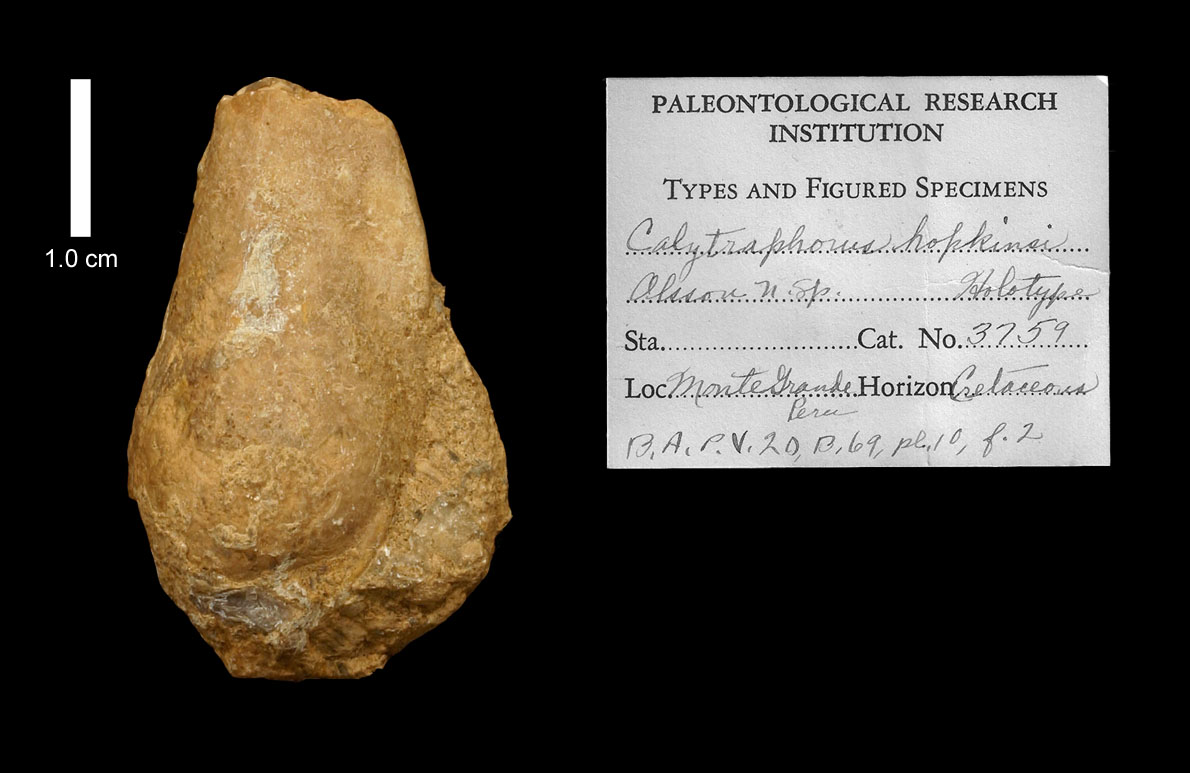 1.0 cm
PALEONTOLOGICAL RESEARCH
INSTITUTION
TYPES AND FIGURED SPECIMENS
Calytraphorus hopkinsi
Olsson n. sp. Holotype
Sta. Cat. No. 3759
Loc. Monte Grande Horizon Cretaceous
Peru
B. A. P. V. 20, B. 69, pl. 10, f. 2